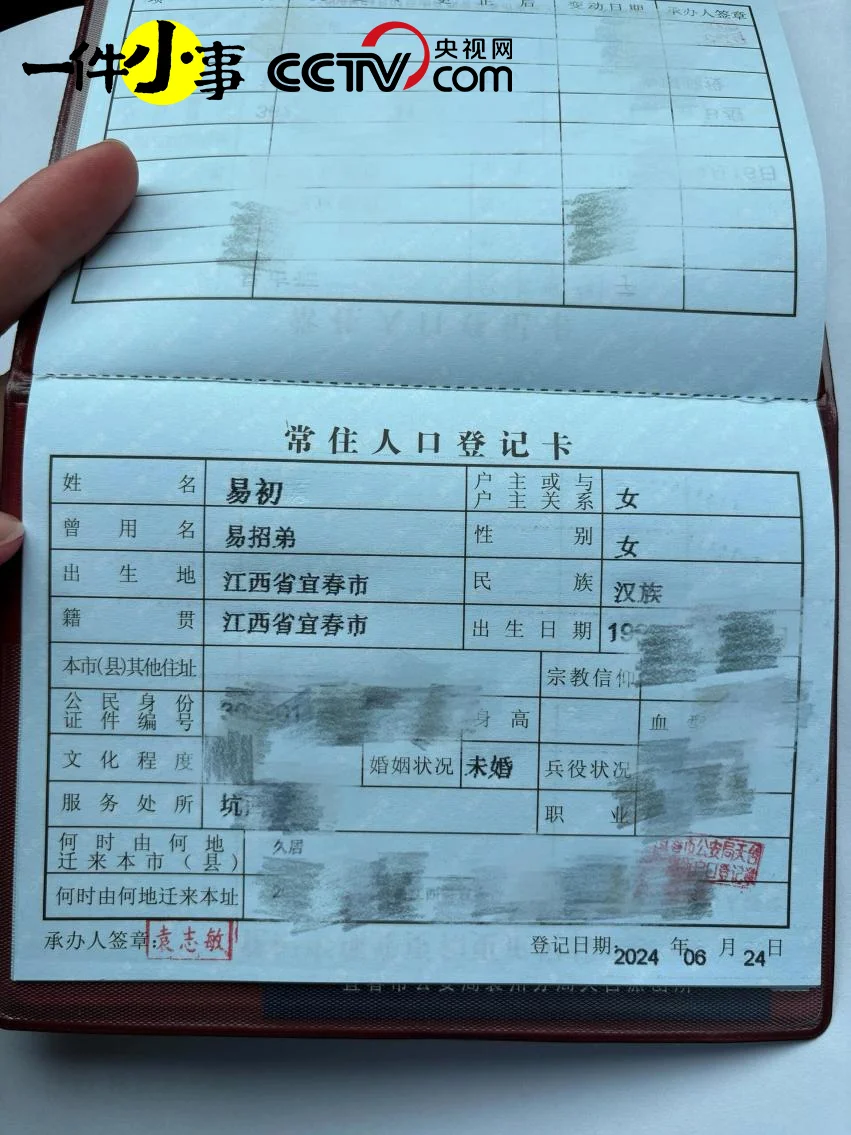 更正后 变动日期 承办人签章
一件小事 CCTV 央视网
com
常住人口登记卡
姓名 易初 户主或与户主关系 女
曾用名 易招弟 性别 女
出生地 江西省宜春市 民族 汉族
籍贯 江西省宜春市 出生日期 199
本市(县)其他住址 宗教信仰
公民身份证件编号 身高 血型
文化程度 婚姻状况 未婚 兵役状况
服务处所 坑 职业
何时由何地迁来本市(县) 久居
市公安局天台
户口登记
何时由何地迁来本址
承办人签章: 袁志敏 登记日期: 2024 年 06 月 24 日